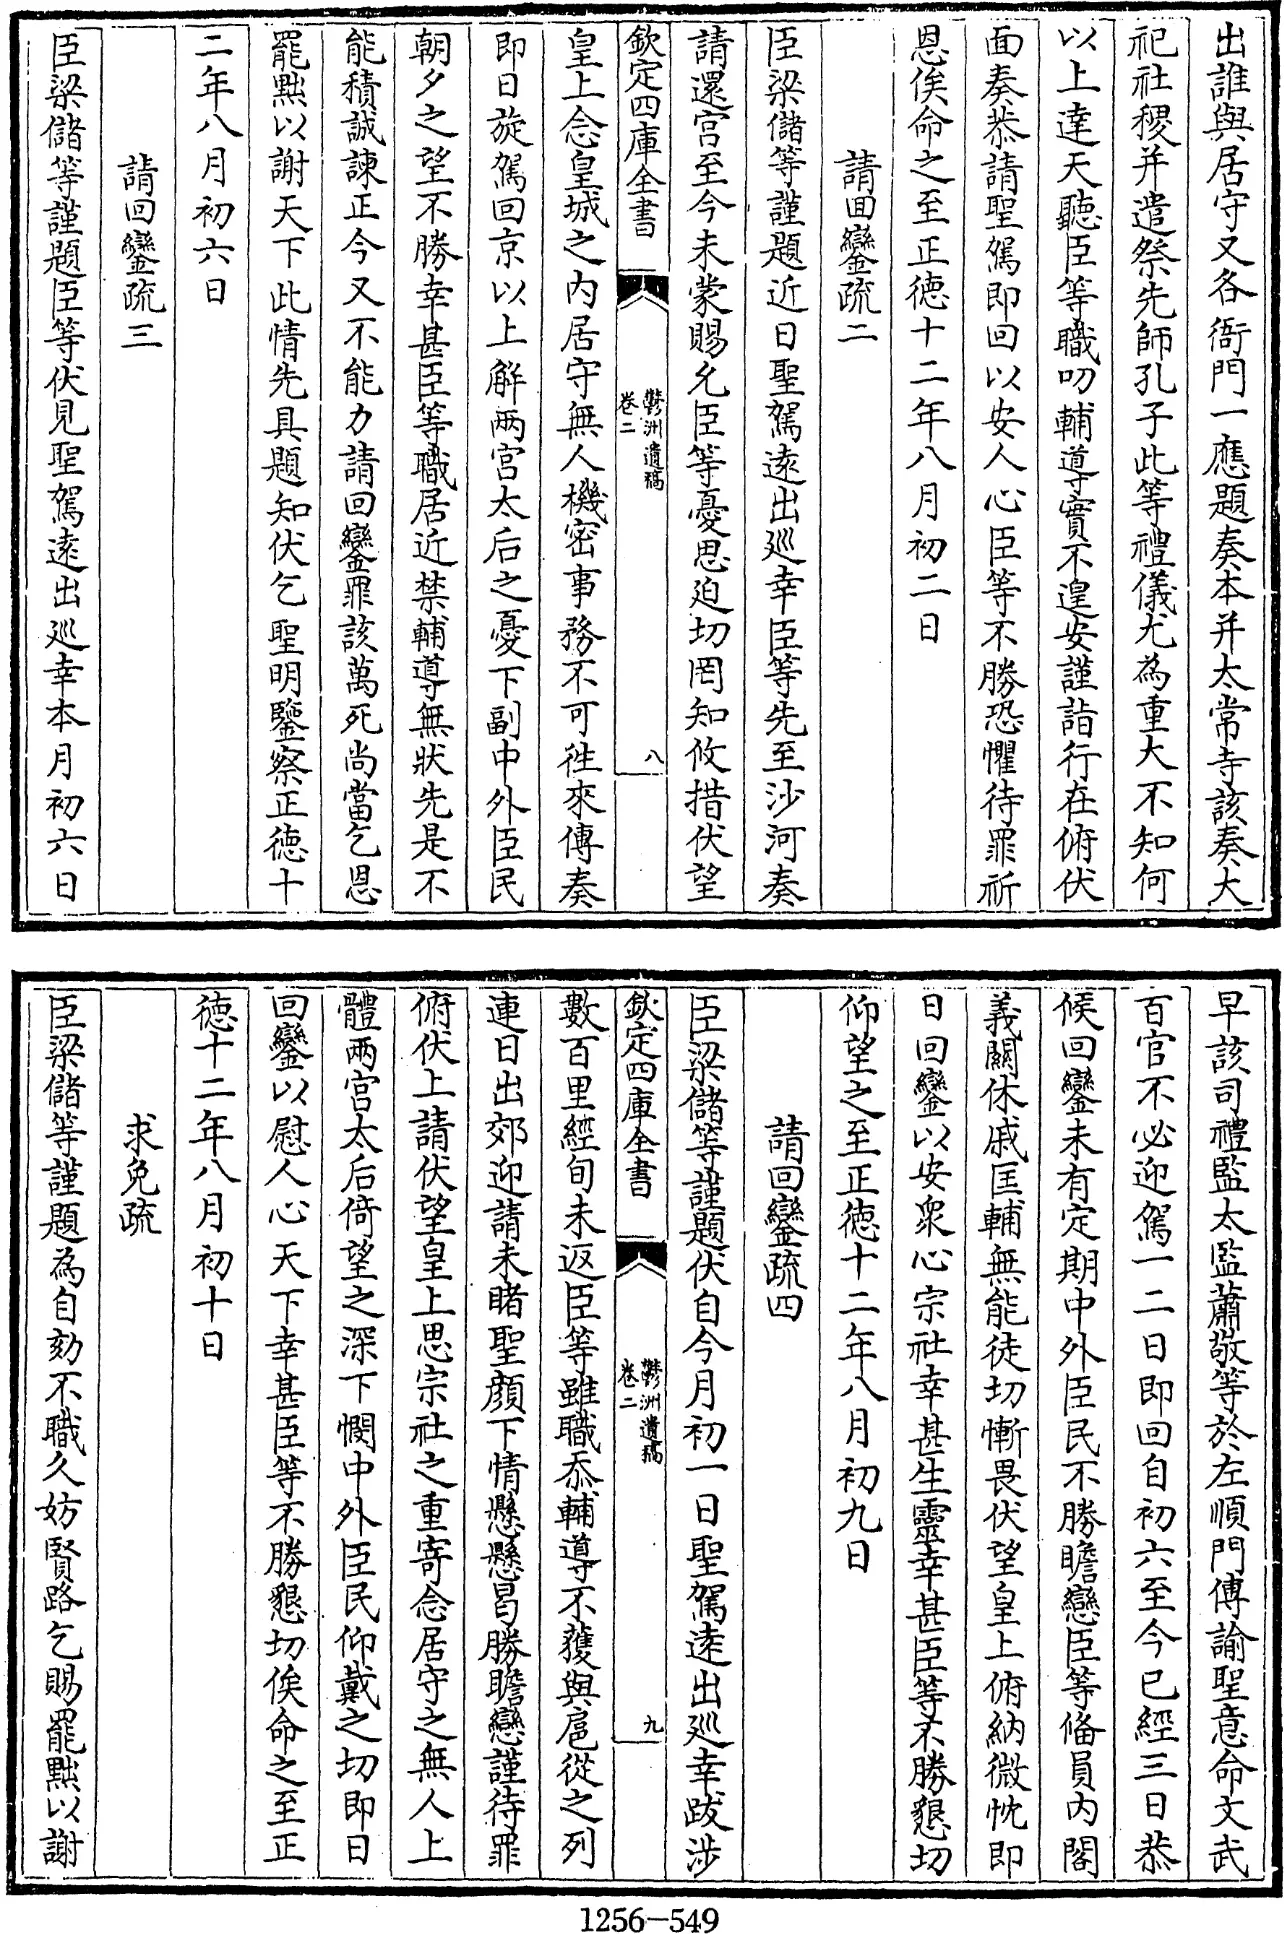 出誰與居守又各衙門一應題奏本并太常寺該奏大
祀社稷并遣祭先師孔子此等禮儀尤為重大不知何
以上達天聽臣等職叨輔導實不遑安謹詣行在俯伏
面奏恭請聖駕即回以安人心臣等不勝恐懼待罪祈
恩俟命之至正德十二年八月初二日
請回鑾疏二
臣梁儲等謹題近日聖駕遠出巡幸臣等先至沙河奏
請還宮至今未蒙賜允臣等憂思迫切罔知攸措伏望
欽定四庫全書
鬱洲遺稿
卷二
八
皇上念皇城之內居守無人機密事務不可徃來傳奏
即日旋駕回京以上解兩宮太后之憂下副中外臣民
朝夕之望不勝幸甚臣等職居近禁輔導無狀先是不
能積誠諫正今又不能力請回鑾罪該萬死尚當乞恩
罷黜以謝天下此情先具題知伏乞聖明鑒察正德十
二年八月初六日
請回鑾疏三
臣梁儲等謹題臣等伏見聖駕遠出巡幸本月初六日
早該司禮監太監蕭敬等於左順門傳諭聖意命文武
百官不必迎駕一二日即回自初六至今已經三日恭
候回鑾未有定期中外臣民不勝瞻戀臣等俻員內閣
義關休戚匡輔無能徒切慚畏伏望皇上俯納微忱即
日回鑾以安衆心宗社幸甚生靈幸甚臣等不勝懇切
仰望之至正德十二年八月初九日
請回鑾疏四
臣梁儲等謹題伏自今月初一日聖駕遠出巡幸跋涉
欽定四庫全書
鬱洲遺稿
卷二
九
數百里經旬未返臣等雖職忝輔導不獲與扈從之列
連日出郊迎請未睹聖顏下情懸懸曷勝瞻戀謹待罪
俯伏上請伏望皇上思宗社之重寄念居守之無人上
體兩宮太后倚望之深下憫中外臣民仰戴之切即日
回鑾以慰人心天下幸甚臣等不勝懇切俟命之至正
德十二年八月初十日
求免疏
臣梁儲等謹題為自劾不職久妨賢路乞賜罷黜以謝
1256-549